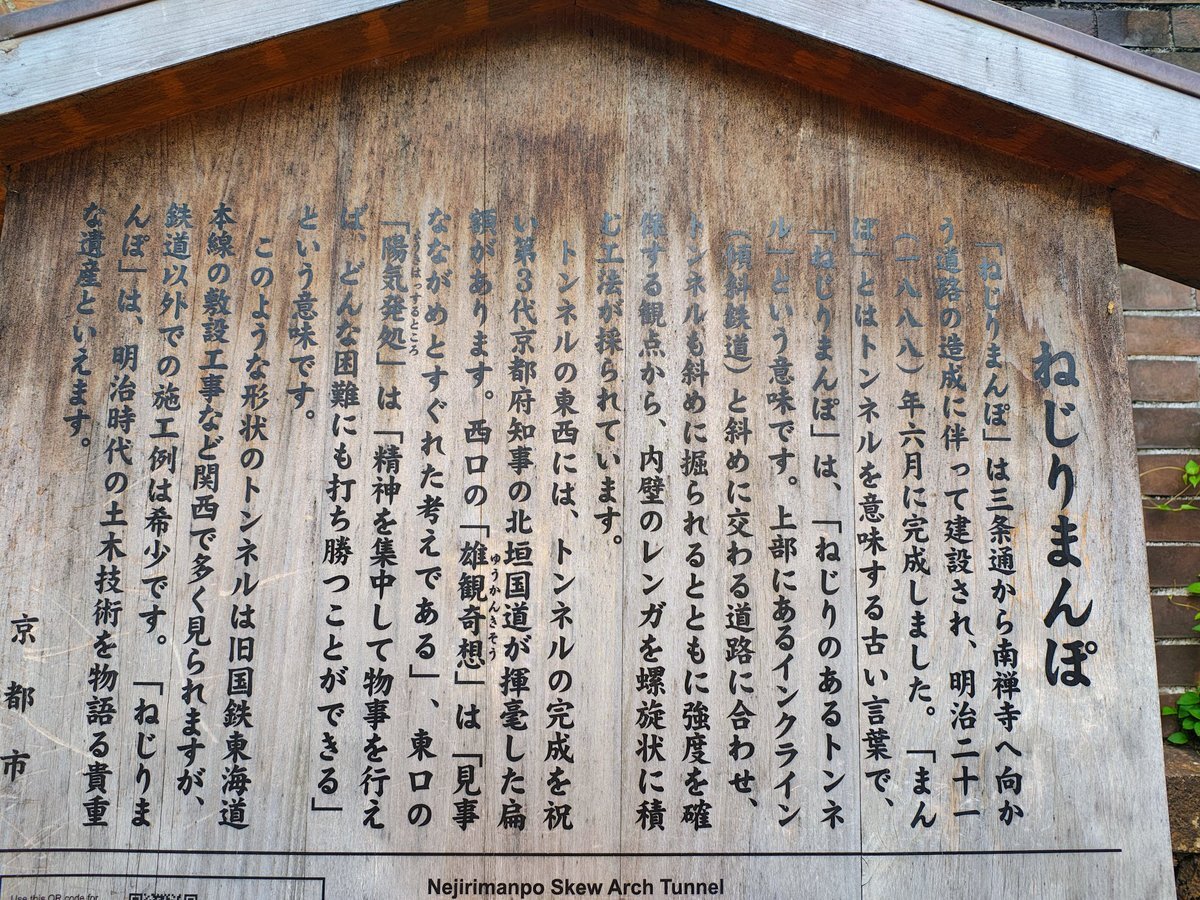 ねじりまんぽ
「ねじりまんぽ」は三条通から南禅寺へ向か
う道路の造成に伴って建設され、明治二十一
（一八八八）年六月に完成しました。「まん
ぽ」とはトンネルを意味する古い言葉で、
「ねじりまんぽ」は、「ねじりのあるトンネ
ル」という意味です。上部にあるインクライン
（傾斜鉄道）と斜めに交わる道路に合わせ、
トンネルも斜めに掘られるとともに強度を確
保する観点から、内壁のレンガを螺旋状に積
む工法が採られています。
トンネルの東西には、トンネルの完成を祝
い第３代京都府知事の北垣国道が揮毫した扁
額があります。西口の「雄観奇想」は「見事
ゆうかんきそう
なながめとすぐれた考えである」、東口の
「陽気発処」は「精神を集中して物事を行え
ようきはっするところ
ば、どんな困難にも打ち勝つことができる」
という意味です。
このような形状のトンネルは旧国鉄東海道
本線の敷設工事など関西で多く見られますが、
鉄道以外での施工例は希少です。「ねじりま
んぽ」は、明治時代の土木技術を物語る貴重
な遺産といえます。
京都市
Nejirimanpo Skew Arch Tunnel
Use this QR code for